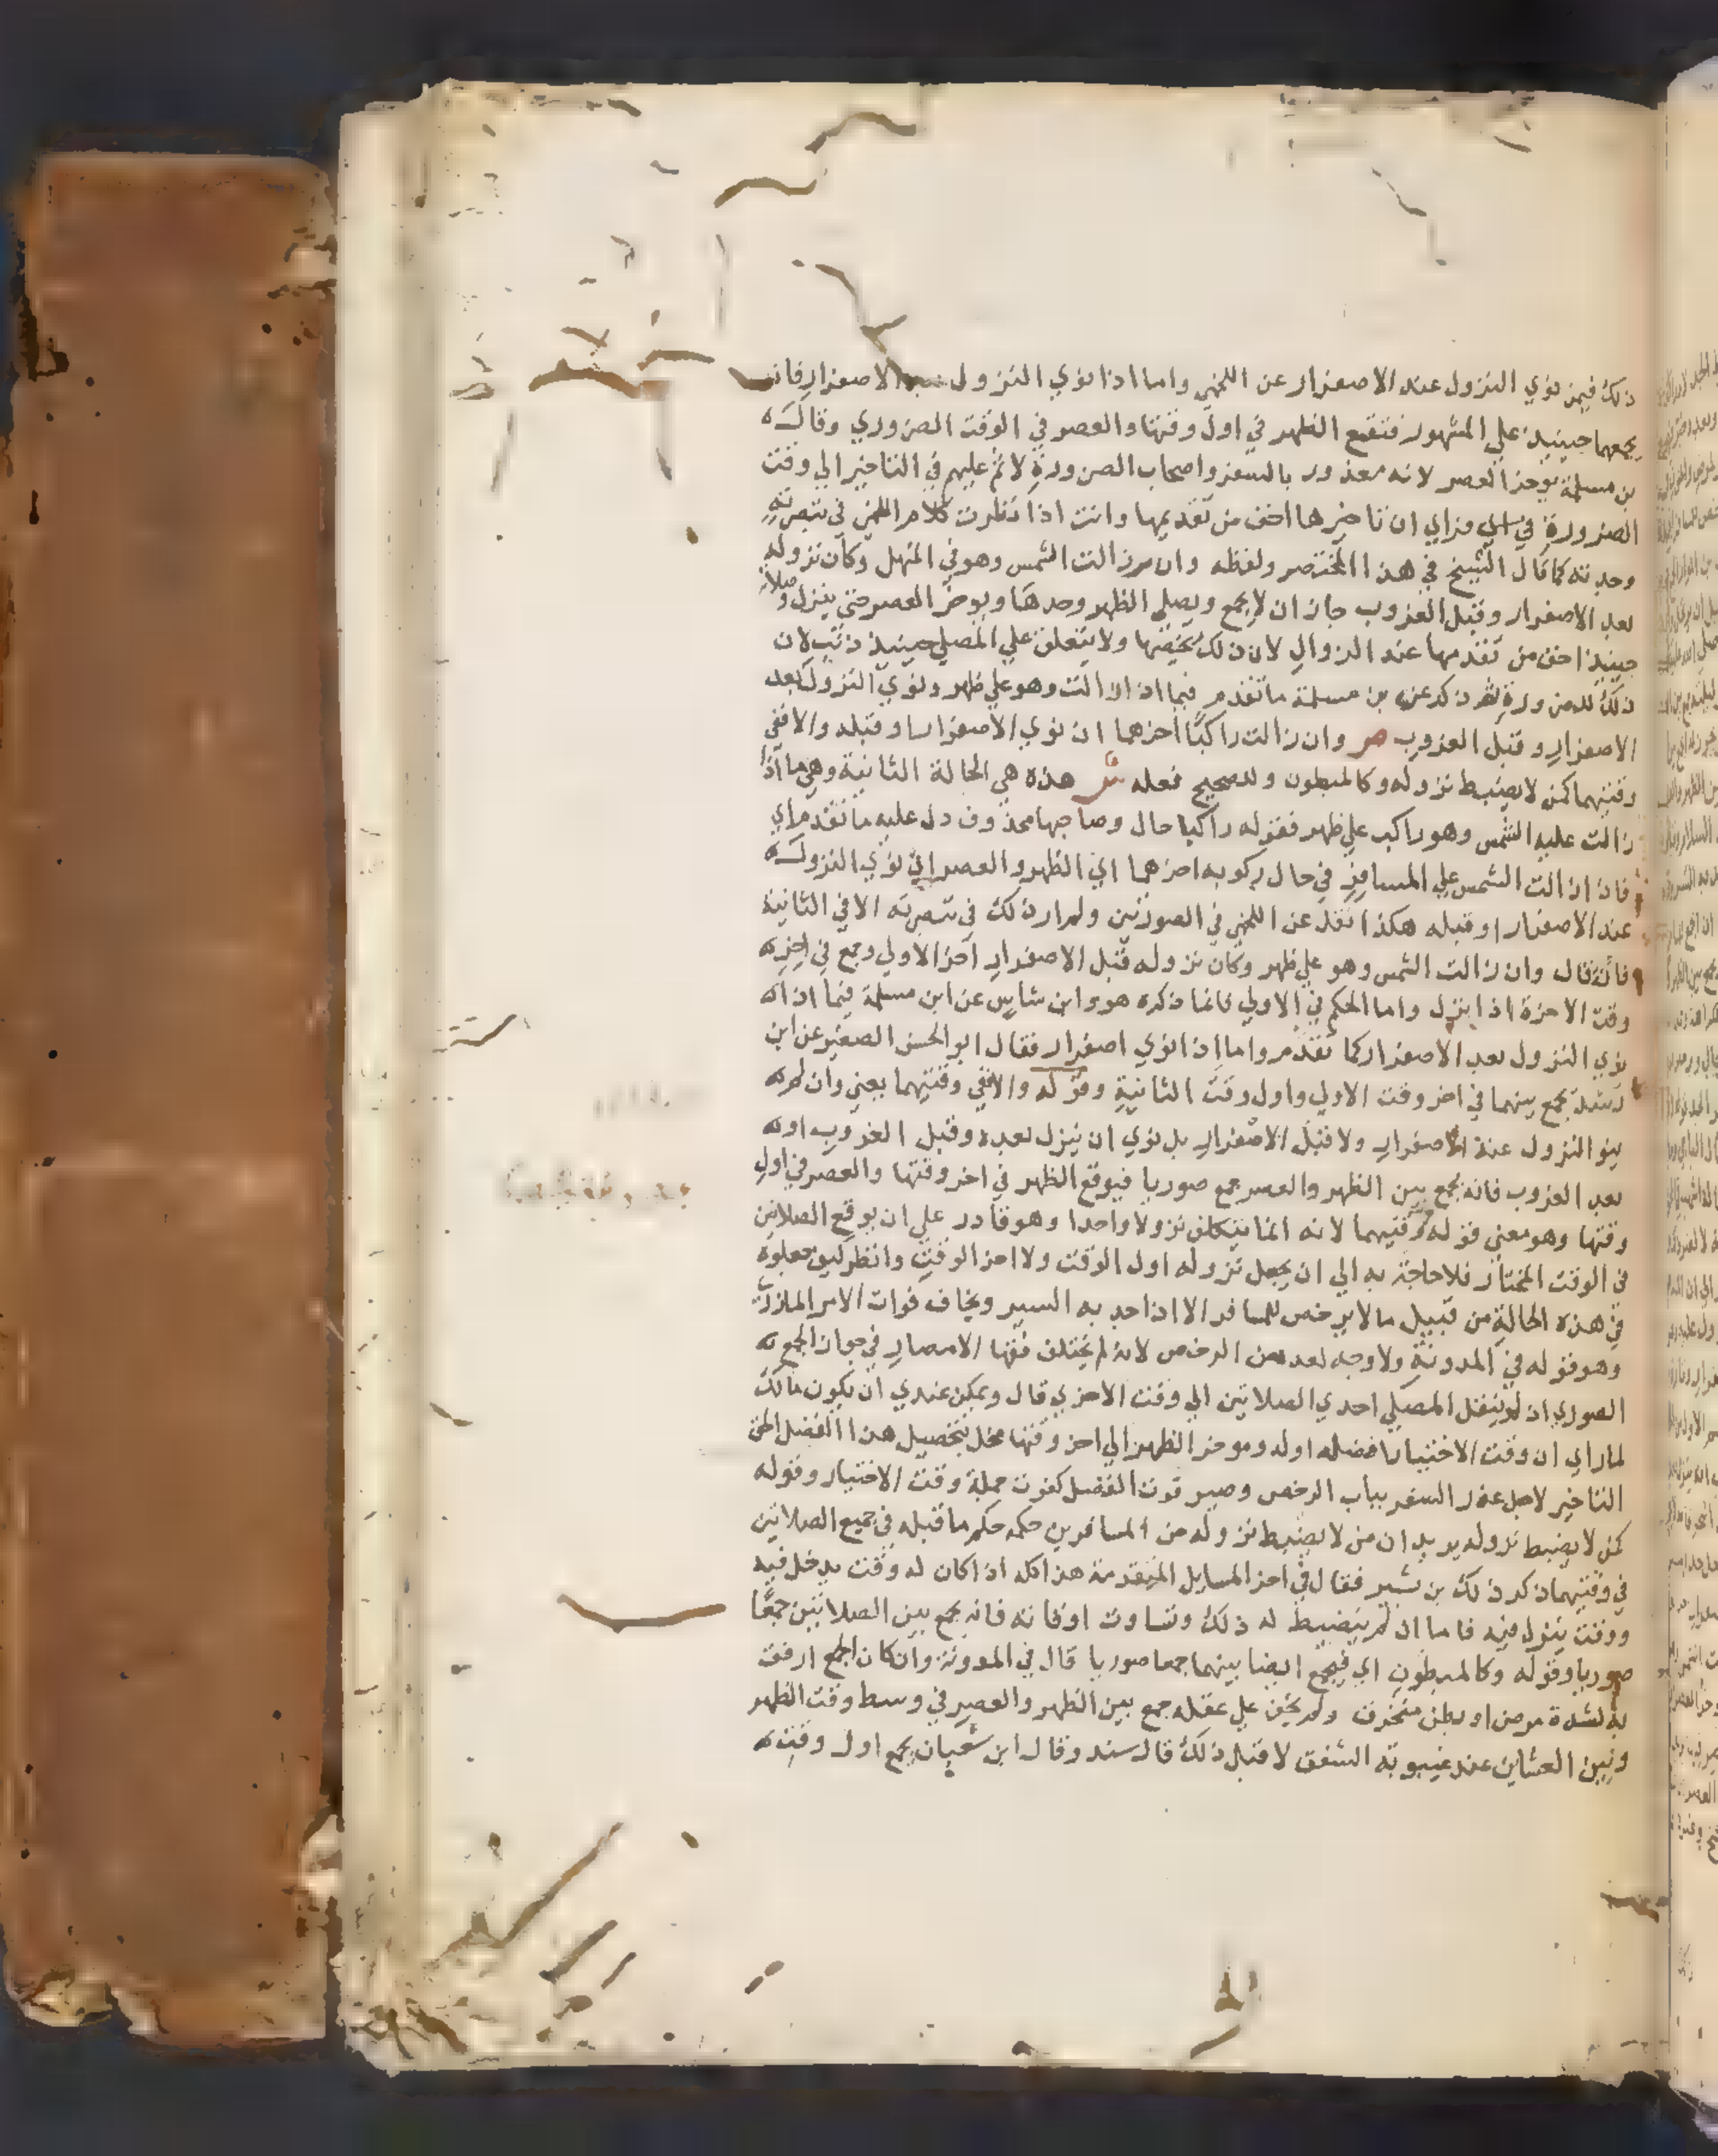 ذلك فيمن نوي النزول عند الاصفرار عن اللخمي واما اذا نوي النزول الاصفرار فانه
يجمعهما حينيذ علي المشهور فتقع الظهر في اول وقتها والعصر في الوقت الضروري وقال
بن مسلمة يوخر العصر لانه معذور بالسفر واصحاب الضرورة لا اثم عليهم في التاخير الي وقت
الضرورة فراي ان تاخيرها اخف من تقديمها وانت اذا نظرت كلام اللخمي في تبصرته
وجدته كما قال الشيخ في هذا المختصر ولفظه وان زالت الشمس وهو في المنهل وكان نزوله
بعد الاصفرار وقبل الغروب جاز ان لا يجمع ويصلي الظهر وحدها ويوخر العصر حتي ينزل وصلاته
حينيذ اخف من تقدمها عند الزوال لان ذلك يخصها ولا يتعلق علي المصلي حينيذ ذنب لان
ذلك للضرورة ثم ذكر عن بن مسلمة ما تقدم فيما اذا زالت وهو علي ظهر ونوي النزول بعد
الاصفرار وقبل الغروب ص وان زالت راكبا اخرهما ان نوي الاصفرار او قبله والا ففي
وقتيهما كمن لا يضبط نزوله وكالمبطون وللصحيح فعله ش هذه هي الحالة الثانية وهي ما اذا
زالت عليه الشمس وهو راكب علي ظهر فقوله راكبا حال وصاحبها محذوف دل عليه ما تقدم اي
فان زالت الشمس علي المسافر في حال ركوبه اخرهما اي الظهر والعصر اي نوي النزول
عند الاصفرار او قبله هكذا نقل عن اللخمي في الصورتين ولم ار ذلك في تبصرته الا في الثانية
فانه قال وان زالت الشمس وهو علي ظهر وكان نزوله قبل الاصفرار اخر الاولي وجمع في اخره
وقت الاخرة اذا نزل واما الحكم في الاولي فانما ذكره هو وابن شاس عن ابن مسلمة فيما اذا
نوي النزول بعد الاصفرار كما تقدم واما اذا نوي اصفرار فقال ابو الحسن الصغير عن ابن
رشد يجمع بينهما في اخر وقت الاولي واول وقت الثانية وقوله والا ففي وقتيهما يعني وان لم
ينو النزول عند الاصفرار ولا قبل الاصفرار بل نوي ان ينزل بعده وقبل الغروب او
بعد الغروب فانه يجمع بين الظهر والعصر جمع صوريا فيوقع الظهر في اخر وقتها والعصر في اول
وقتها وهو معني قوله وقتيهما لانه انما يتكلف نزولا واحدا وهو قادر علي ان يوقع الصلاتين
في الوقت المختار فلا حاجة به الي ان يجعل نزوله اول الوقت ولا اخر الوقت وانظر كيف جعلوه
في هذه الحالة من قبيل ما لا يرخص للمسافر الا اذا جد به السير ويخاف فوات الامر المازري
وهو قوله في المدونة ولا وجه لعده من الرخص لانه لم يختلف فقها الامصار في جواز الجمع
الصوري ان لم ينقل المصلي احدي الصلاتين الي وقت الاخري قال ويمكن عندي ان يكون مالك
لما راي ان وقت الاختيار افضله اوله وموخر الظهر الي اخر وقتها مخل بتحصيل هذا الفضل الحق
التاخير لاجل عذر السفر بباب الرخص وصير فوت الفضل كفوت جملة وقت الاختيار وقوله
كمن لا يضبط نزوله يريد ان من لا يضبط نزوله من المسافرين حكمه حكم ما قبله في جميع الصلاتين
في وقتيهما ذكر ذلك بن بشير فقال في اخر المسايل المتقدمة هذا كله اذا كان له وقت يدخل فيه
ووقت ينزل فيه فاما ان لم ينضبط له ذلك وتساوت اوقاته فانه يجمع بين الصلاتين جمعا
صوريا وقوله وكالمبطون اي فيجمع ايضا بينهما جمعا صوريا قال في المدونة وان كان الجمع ارفق
به لشدة مرض او بطن منخرق ولم يخف علي عقله جمع بين الظهر والعصر في وسط وقت الظهر
وبين العشاين عند غيبوبة الشفق لا قبل ذلك قال سند وقال ابن شعبان يجمع اول وقت